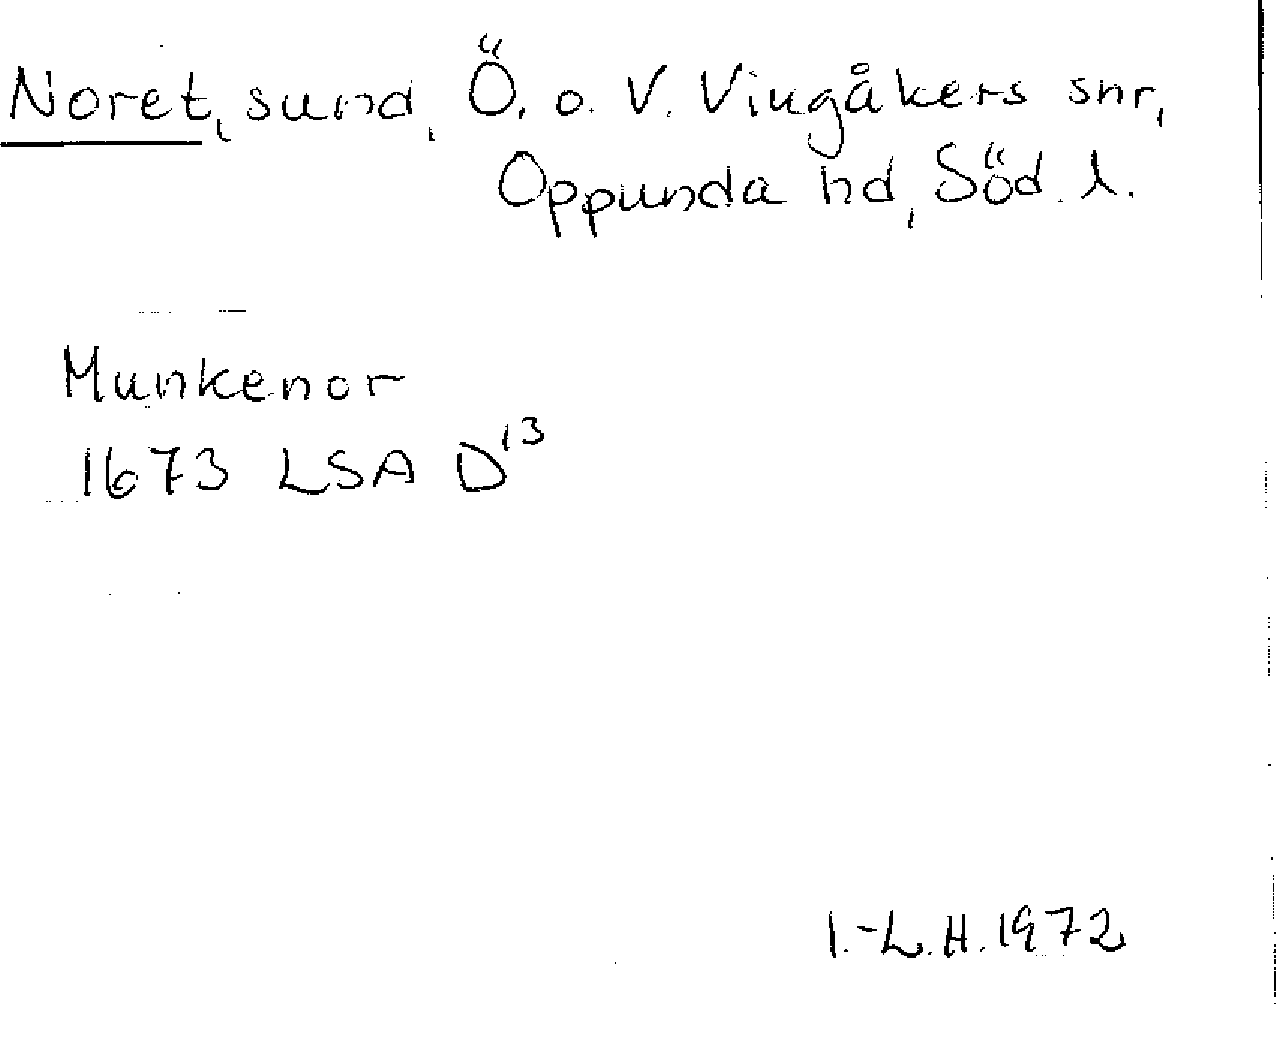 Noret, sund, Ö. o. V. Vingåkers snr,
Oppunda hd, Söd. l.
Munkenor
1673 LSA D¹³
I.-L.H. 1972